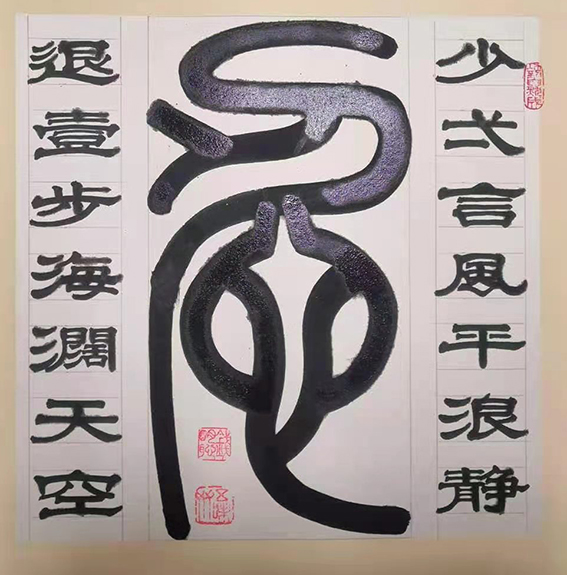 少弌言風平浪静
忍
退壹步海濶天空